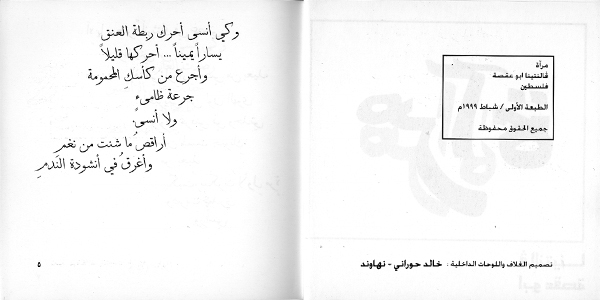 مرآة
فالنتينا ابو عقصة
فلسطين
الطبعة الأولى / شباط ١٩٩٩م
جميع الحقوق محفوظة
تصميم الغلاف واللوحات الداخلية : خالد حوراني - نهاوند
وكي أنسى أحرك ربطة العنق
يساراً يميناً ... أحركها قليلاً
وأجرع من كأسكِ المحمومة
جرعة ظامىءٍ
ولا أنسى.
أراقصُ ما شئت من نغمٍ
وأغرقُ في أنشودة الندمِ
٥